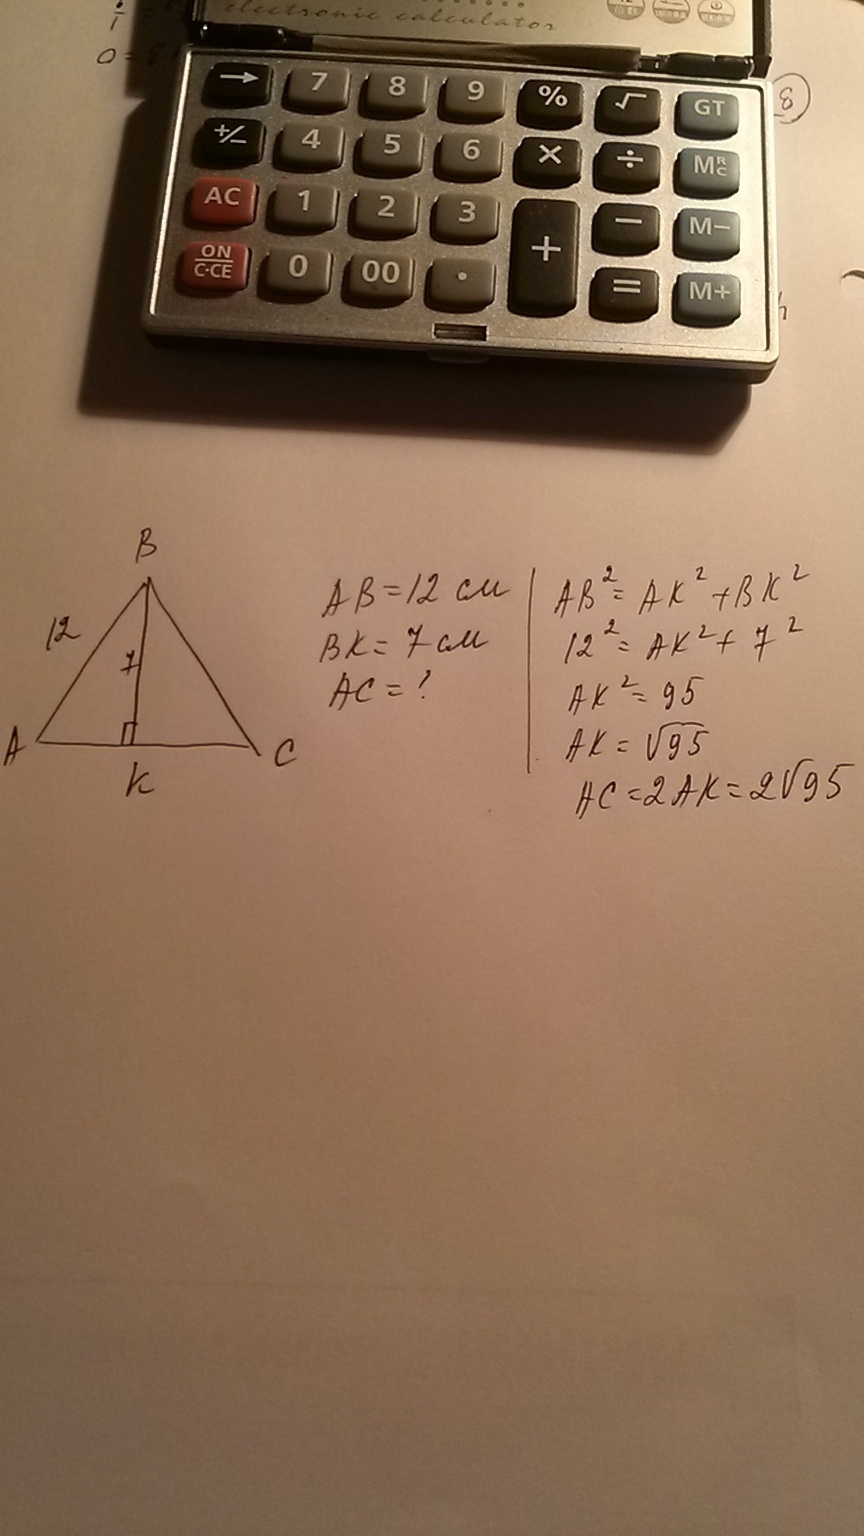 electronic calculator
→ 7 8 9 % √ GT
+/− 4 5 6 × ÷ MRC
AC 1 2 3 + − M−
ON/C·CE 0 00 · = M+
8
B
12
7
A
C
K
AB=12 см
BK=7 см
AC=?
AB²=AK²+BK²
12²=AK²+7²
AK²=95
AK=√95
AC=2AK=2√95